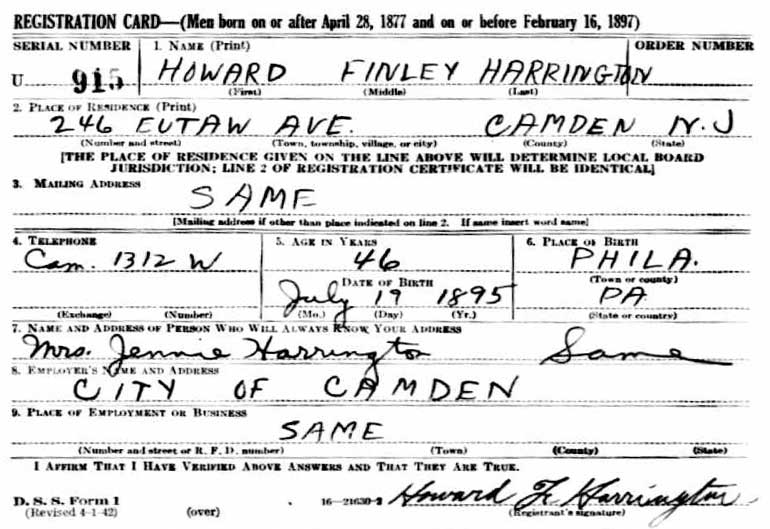 REGISTRATION CARD—(Men born on or after April 28, 1877 and on or before February 16, 1897)
SERIAL NUMBER 1. NAME (Print) ORDER NUMBER
U 915 HOWARD FINLEY HARRINGTON
(First) (Middle) (Last)
2. PLACE OF RESIDENCE (Print)
246 EUTAW AVE. CAMDEN N.J
(Number and street) (Town, township, village, or city) (County) (State)
[THE PLACE OF RESIDENCE GIVEN ON THE LINE ABOVE WILL DETERMINE LOCAL BOARD
JURISDICTION; LINE 2 OF REGISTRATION CERTIFICATE WILL BE IDENTICAL]
3. MAILING ADDRESS
SAME
[Mailing address if other than place indicated on line 2. If same insert word same]
4. TELEPHONE 5. AGE IN YEARS 6. PLACE OF BIRTH
Cam. 1312 W 46 PHILA.
DATE OF BIRTH (Town or county)
July 19 1895 PA
(Exchange) (Number) (Mo.) (Day) (Yr.) (State or country)
7. NAME AND ADDRESS OF PERSON WHO WILL ALWAYS KNOW YOUR ADDRESS
Mrs. Jennie Harrington Same
8. EMPLOYER'S NAME AND ADDRESS
CITY OF CAMDEN
9. PLACE OF EMPLOYMENT OR BUSINESS
SAME
(Number and street or R. F. D. number) (Town) (County) (State)
I AFFIRM THAT I HAVE VERIFIED ABOVE ANSWERS AND THAT THEY ARE TRUE.
D. S. S. Form 1
(Revised 4-1-42) (over) 16—21630-2 Howard F. Harrington
(Registrant's signature)